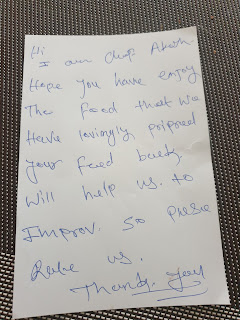 Hi
I am Chef Akash
Hope you have enjoy
The food that We
Have lovingly pripred
your feed back.
Will help us to
Improv. So
Rate us.
Thank you